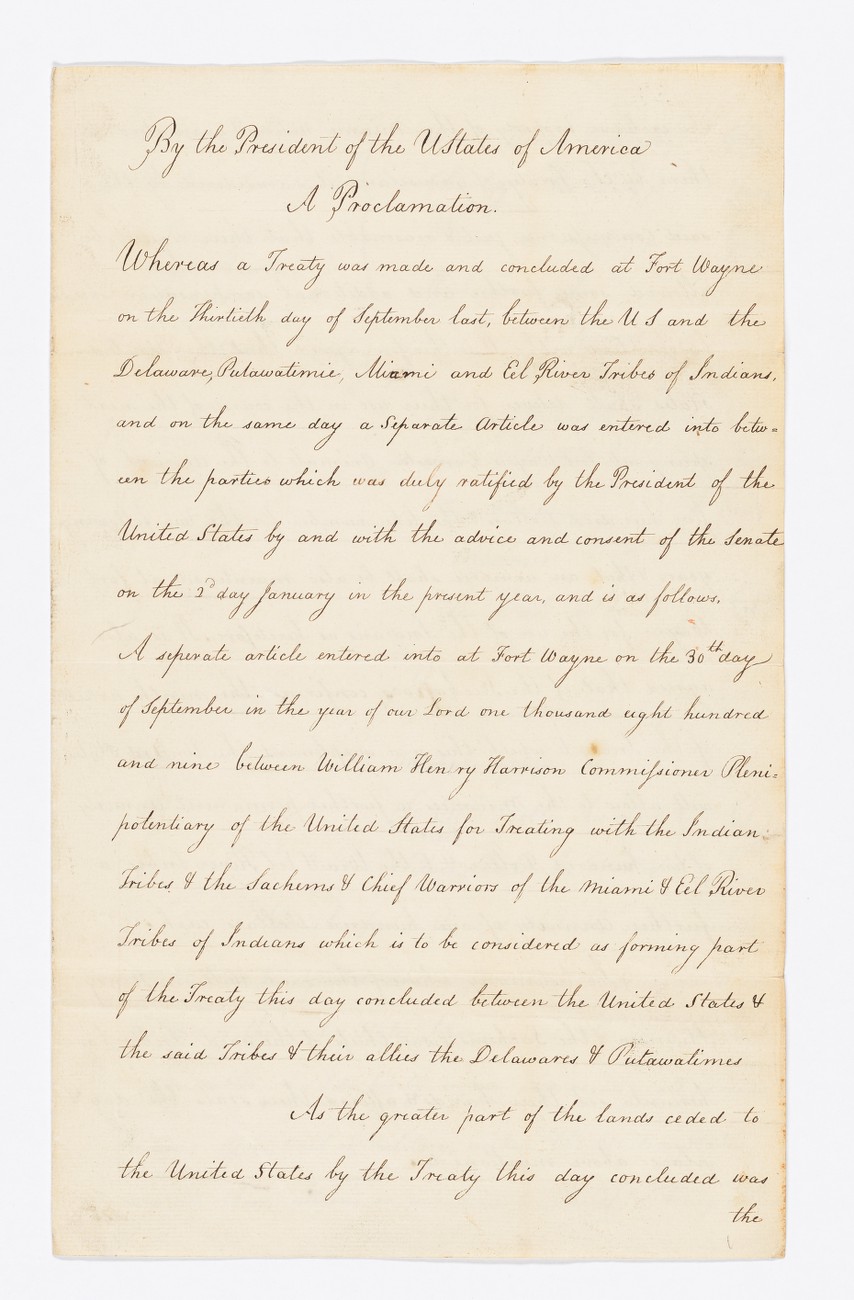 By the President of the UStates of America
A Proclamation.
Whereas a Treaty was made and concluded at Fort Wayne
on the Thirtieth day of September last, between the U S and the
Delaware, Putawatimie, Miami and Eel River Tribes of Indians,
and on the same day a Separate Article was entered into betw=
een the parties which was duly ratified by the President of the
United States by and with the advice and consent of the Senate
on the 2d day January in the present year, and is as follows.
A seperate article entered into at Fort Wayne on the 30th day
of September in the year of our Lord one thousand eight hundred
and nine between William Henry Harrison Commissioner Pleni=
potentiary of the United States for Treating with the Indian
Tribes & the Sachems & Chief Warriors of the Miami & Eel River
Tribes of Indians which is to be considered as forming part
of the Treaty this day concluded between the United States &
the said Tribes & their allies the Delawares & Putawatimes
As the greater part of the lands ceded to
the United States by the Treaty this day concluded was
the